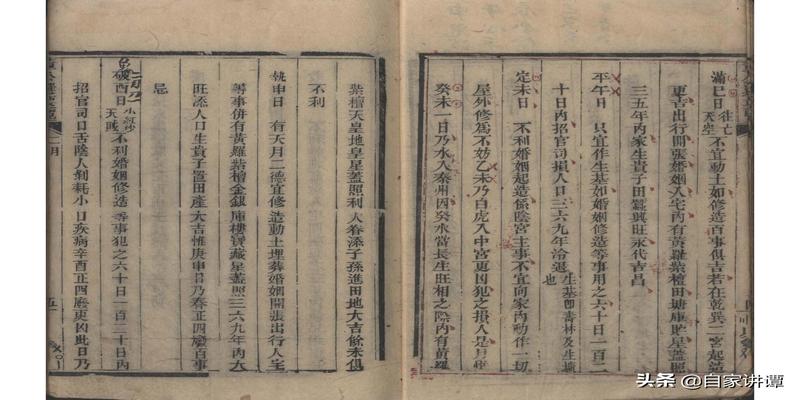 滿巳日 往亡 天空 不宜動土如修造百事俱吉若在乾巽二宮起造
更吉出行開張婚姻入宅內有黃羅紫檀田塘庫貯星蓋照
三五年內家生貴子田蠶興旺永代吉昌
平午日 只宜作生基如婚姻修造等事用之六十日一百二
十日內招官司損人口三六九年冷退 生基即壽林及生墳也
定未日 不利婚姻起造係陰宮主事不宜向家內動作一切
屋外修為不妨乙未乃白虎入中宮更凶犯之損人是月
癸未一日乃水入秦州因癸水當長生旺相之際內有黃羅
紫檀天皇地皇星蓋照利人眷添子孫進田地大吉餘未俱
不利
執申日 有天月二德宜修造動土埋葬婚姻開張出行入宅
等事併有黃羅紫檀金銀庫樓寶藏星蓋照三六九年內大
旺添人口生貴子置田產大吉惟庚申日乃春正四廢百事
忌
破酉日 小紅沙 天賊 不利婚姻修造等事犯之六十日一百二十日內
招官司口舌陰人剝耗小口疾病辛酉正四廢更凶此日乃
二月
五
头条 @自家讲谭